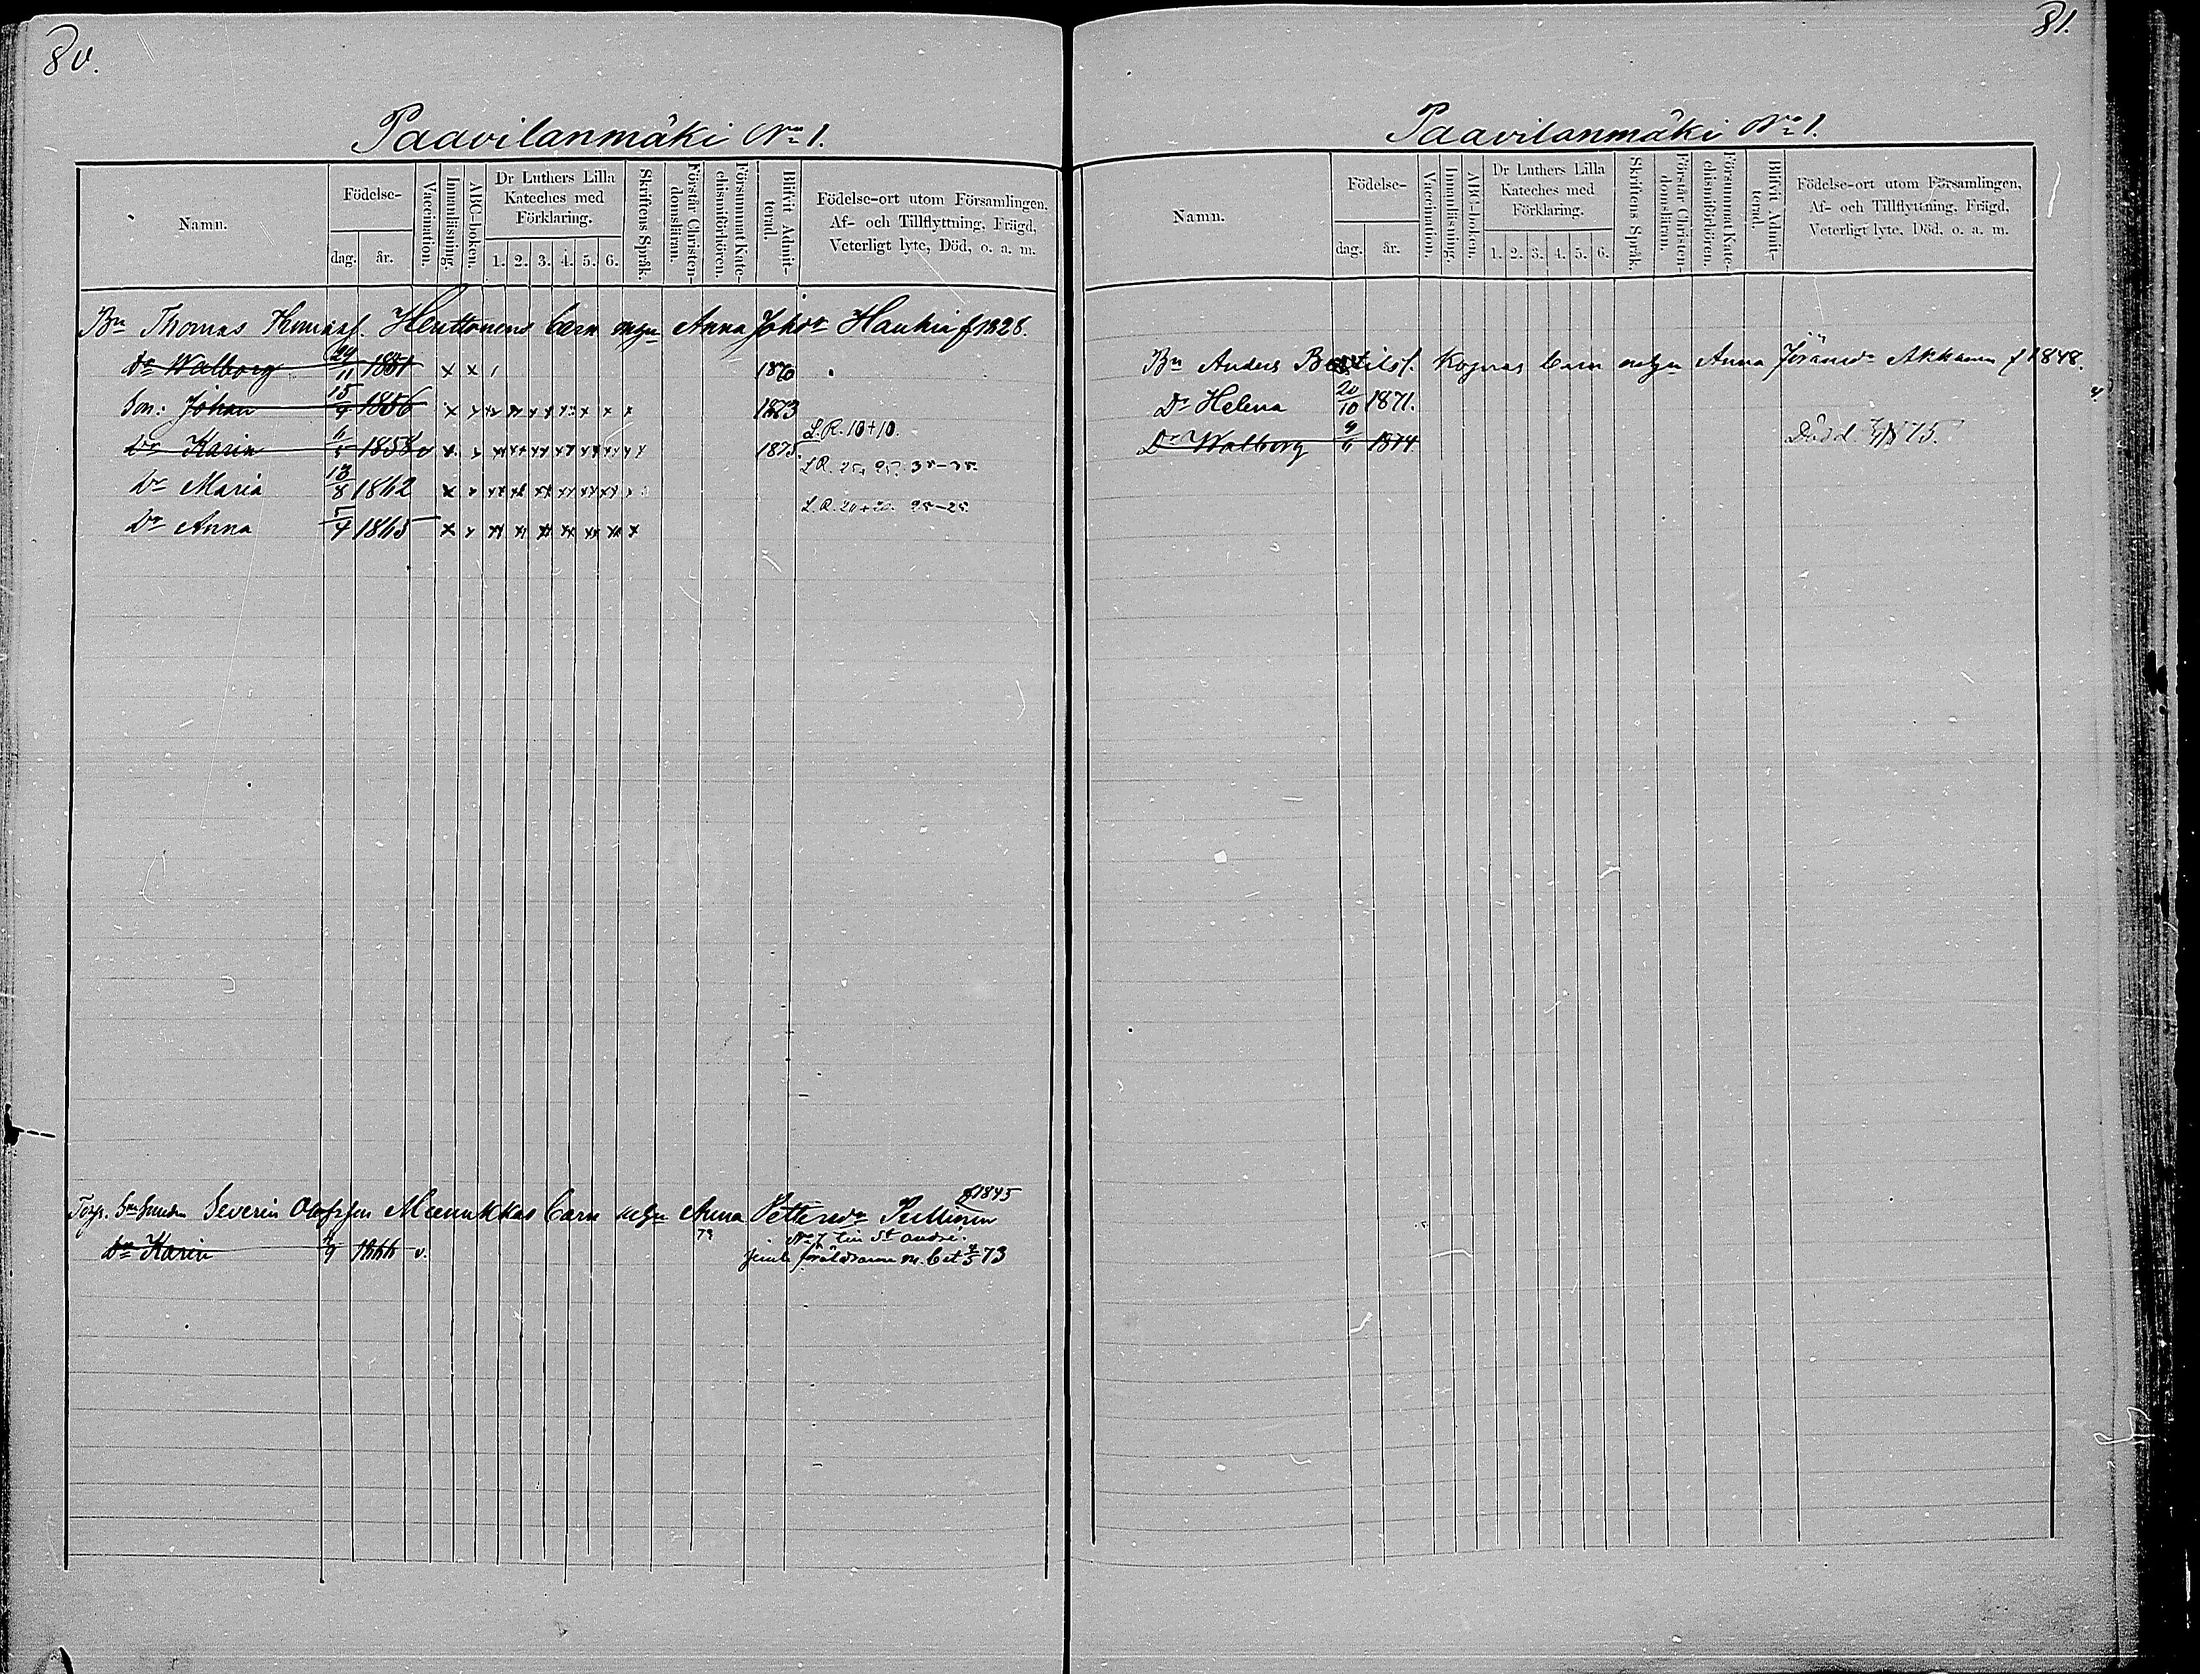 80.
Paavilanmäki No 1.
Namn.
Födelse-
dag.
år.
Vaccination.
Innanläsning.
ABC-boken.
Dr Luthers Lilla
Kateches med
Förklaring.
1. 2. 3. 4. 5. 6.
Skriftens Språk.
Förstår Christen-
domsläran.
Försummat Kate-
chismiförhören.
Blifvit Admit-
terad.
Födelse-ort utom Församlingen,
Af- och Tillflyttning, Frägd,
Veterligt lyte, Död, o. a. m.
Bn Thomas Thomass. Henttonens barn m Anna Johsdr Haukia f 1828.
Dr Walborg 29/11 1851 x x 1870
Son: Johan 15/4 1856 1873
L.R. 10+10.
Dr Karin 1858 v 1875.
L.R. 25+25. 35-35.
Dr Maria 13/8 1862
L.R. 25-25.
Dr Anna 5/4 1865
f 1845
Torp. Severin Olofsson Munukkas barn m Anna Pettersdr Pullinen
No 7 Lin St andré.
Dr Karin 1866 v. föräldrarne m. bet 4/3 73
81.
Paavilanmäki No 1.
Namn.
Födelse-
dag.
år.
Vaccination.
Innanläsning.
ABC-boken.
Dr Luthers Lilla
Kateches med
Förklaring.
1. 2. 3. 4. 5. 6.
Skriftens Språk.
Förstår Christen-
domsläran.
Försummat Kate-
chismiförhören.
Blifvit Admit-
terad.
Födelse-ort utom Församlingen,
Af- och Tillflyttning, Frägd,
Veterligt lyte, Död, o. a. m.
Bn Anders Bertilss. Kopras barn m Anna Jöransdr Akkanen f 1848.
Dr Helena 20/10 1871.
Dr Walborg 1874. Död d. 75.